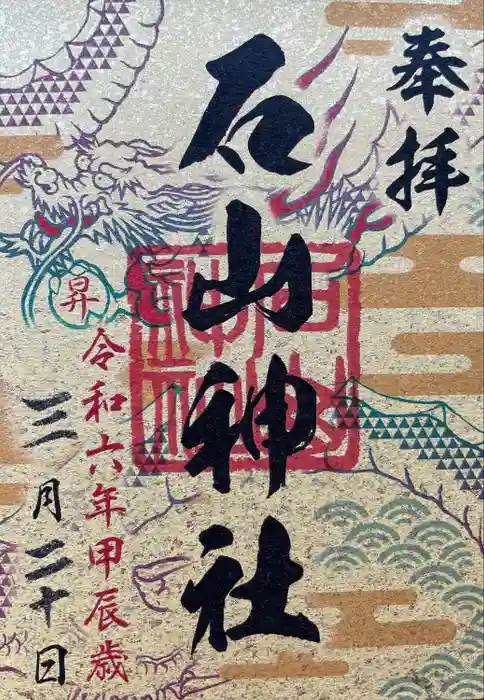 奉拝
石山神社
石山神社
昇
令和六年甲辰歳
三月二十日